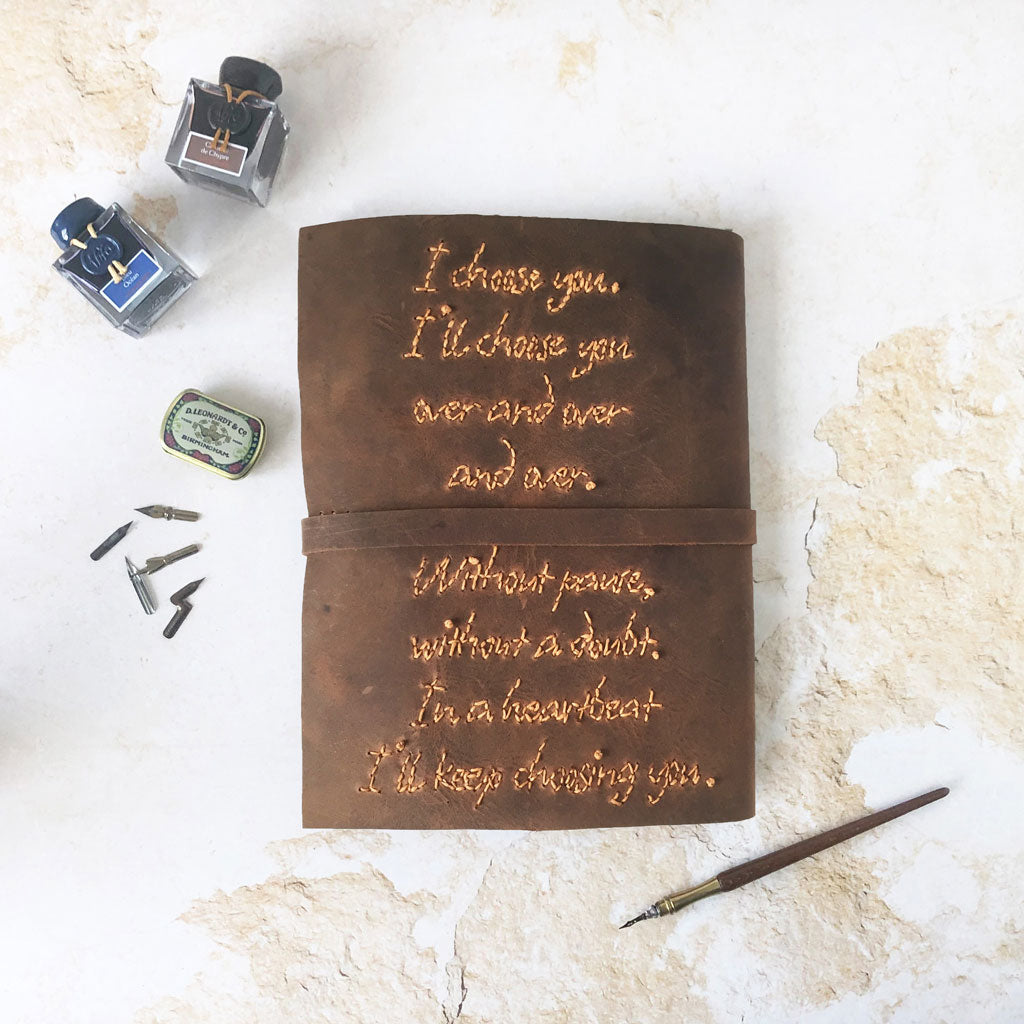 de Chypre
Océan
D. LEONARDT & Co
BIRMINGHAM
I choose you.
I'll choose you
over and over
and over.
Without pause,
without a doubt.
In a heartbeat
I'll keep choosing you.